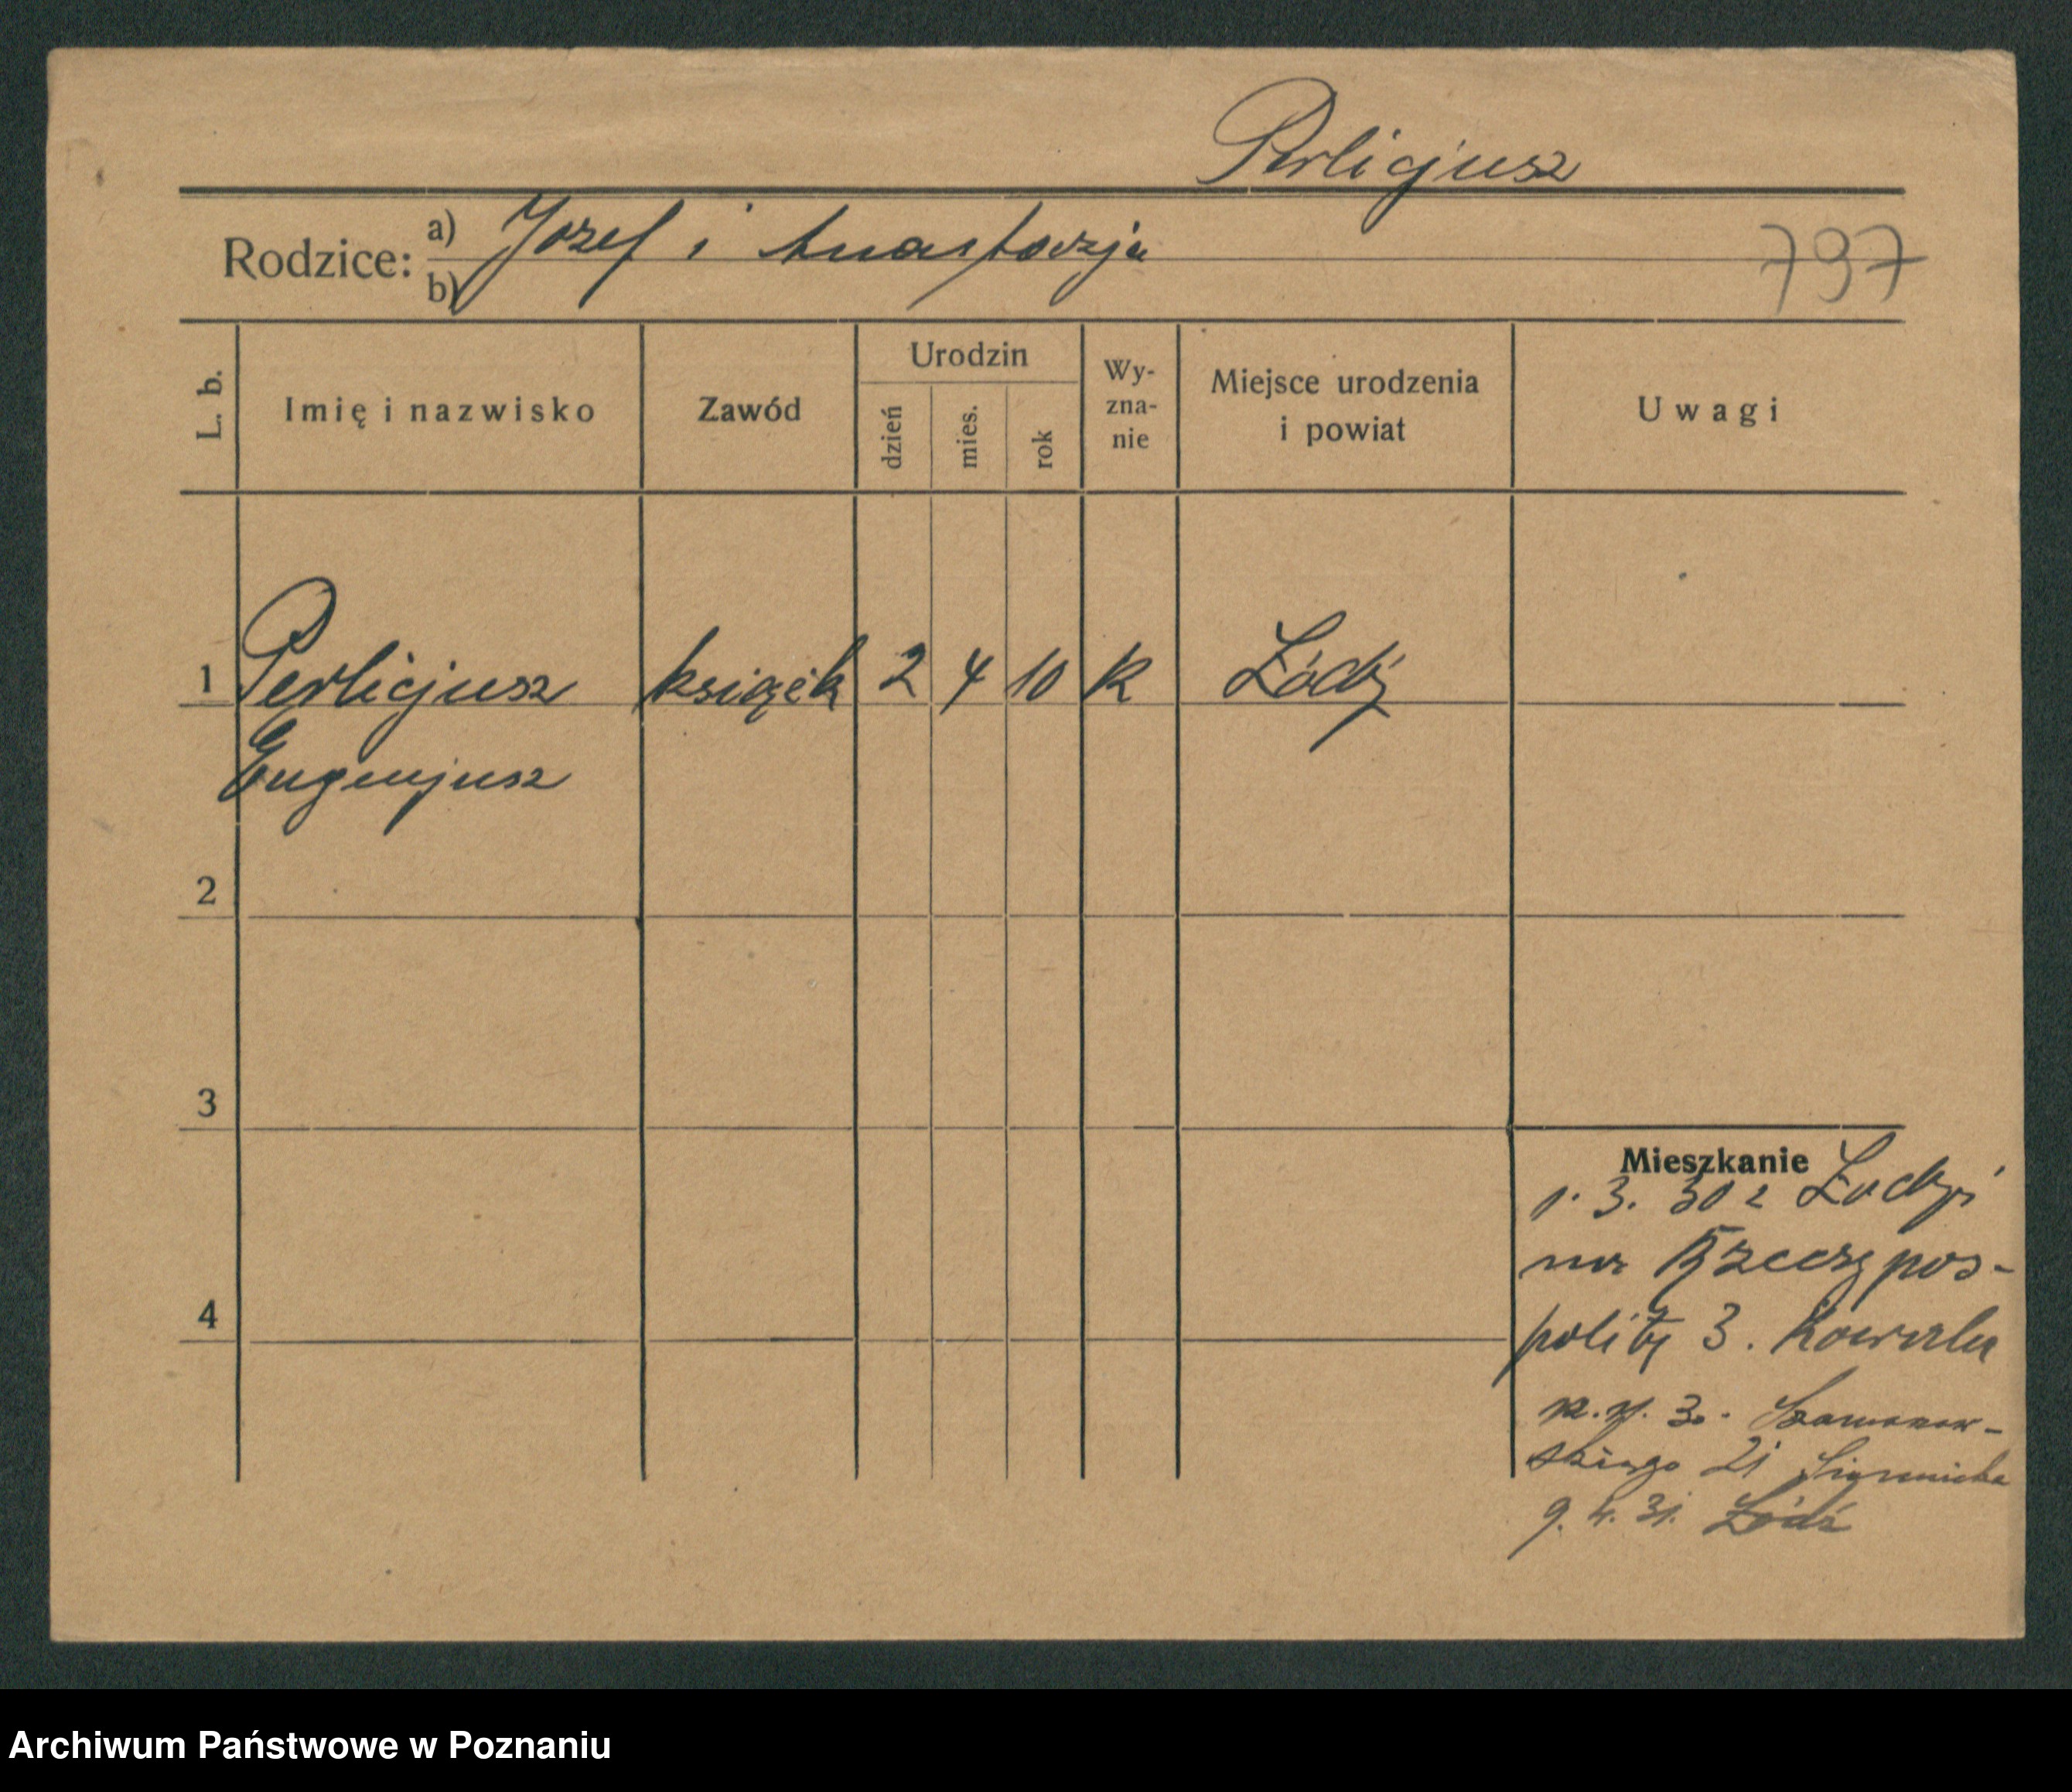 Perlicjusz
Rodzice: a) Józef i Anastazja
b)
797
L. b.
Imię i nazwisko
Zawód
Urodzin
dzień
mies.
rok
Wy-
zna-
nie
Miejsce urodzenia
i powiat
Uwagi
1 Perlicjusz 2 4 10 k Łódź
Eugenjusz
2
3
4
Mieszkanie
1. 3. 30 z Łodzi
na Rzeczypos-
politej 3. Kowalu
3. Szamarzew-
skiego 21
9. 4. 31. Łódź
Archiwum Państwowe w Poznaniu